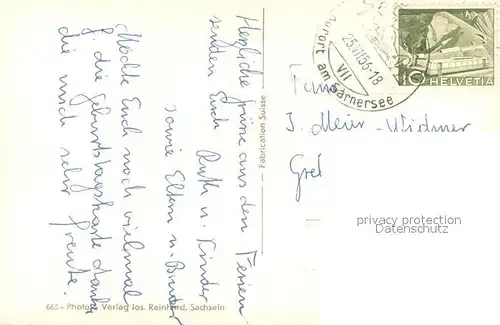 Herzliche Grüsse aus den Ferien
senden Euch Ruth u. Kinder
sowie Eltern u. Bruder
Möchte Euch noch vielmal
f. die Geburtstagskarte danken
die mich sehr freute.
662 - Photo u. Verlag Jos. Reinhard, Sachseln
Fabrication Suisse
Kurort am Sarnersee
25.VII.56-18
VII
10
HELVETIA
Fam.
J. Meier-Widmer
Gret
privacy protection
Datenschutz